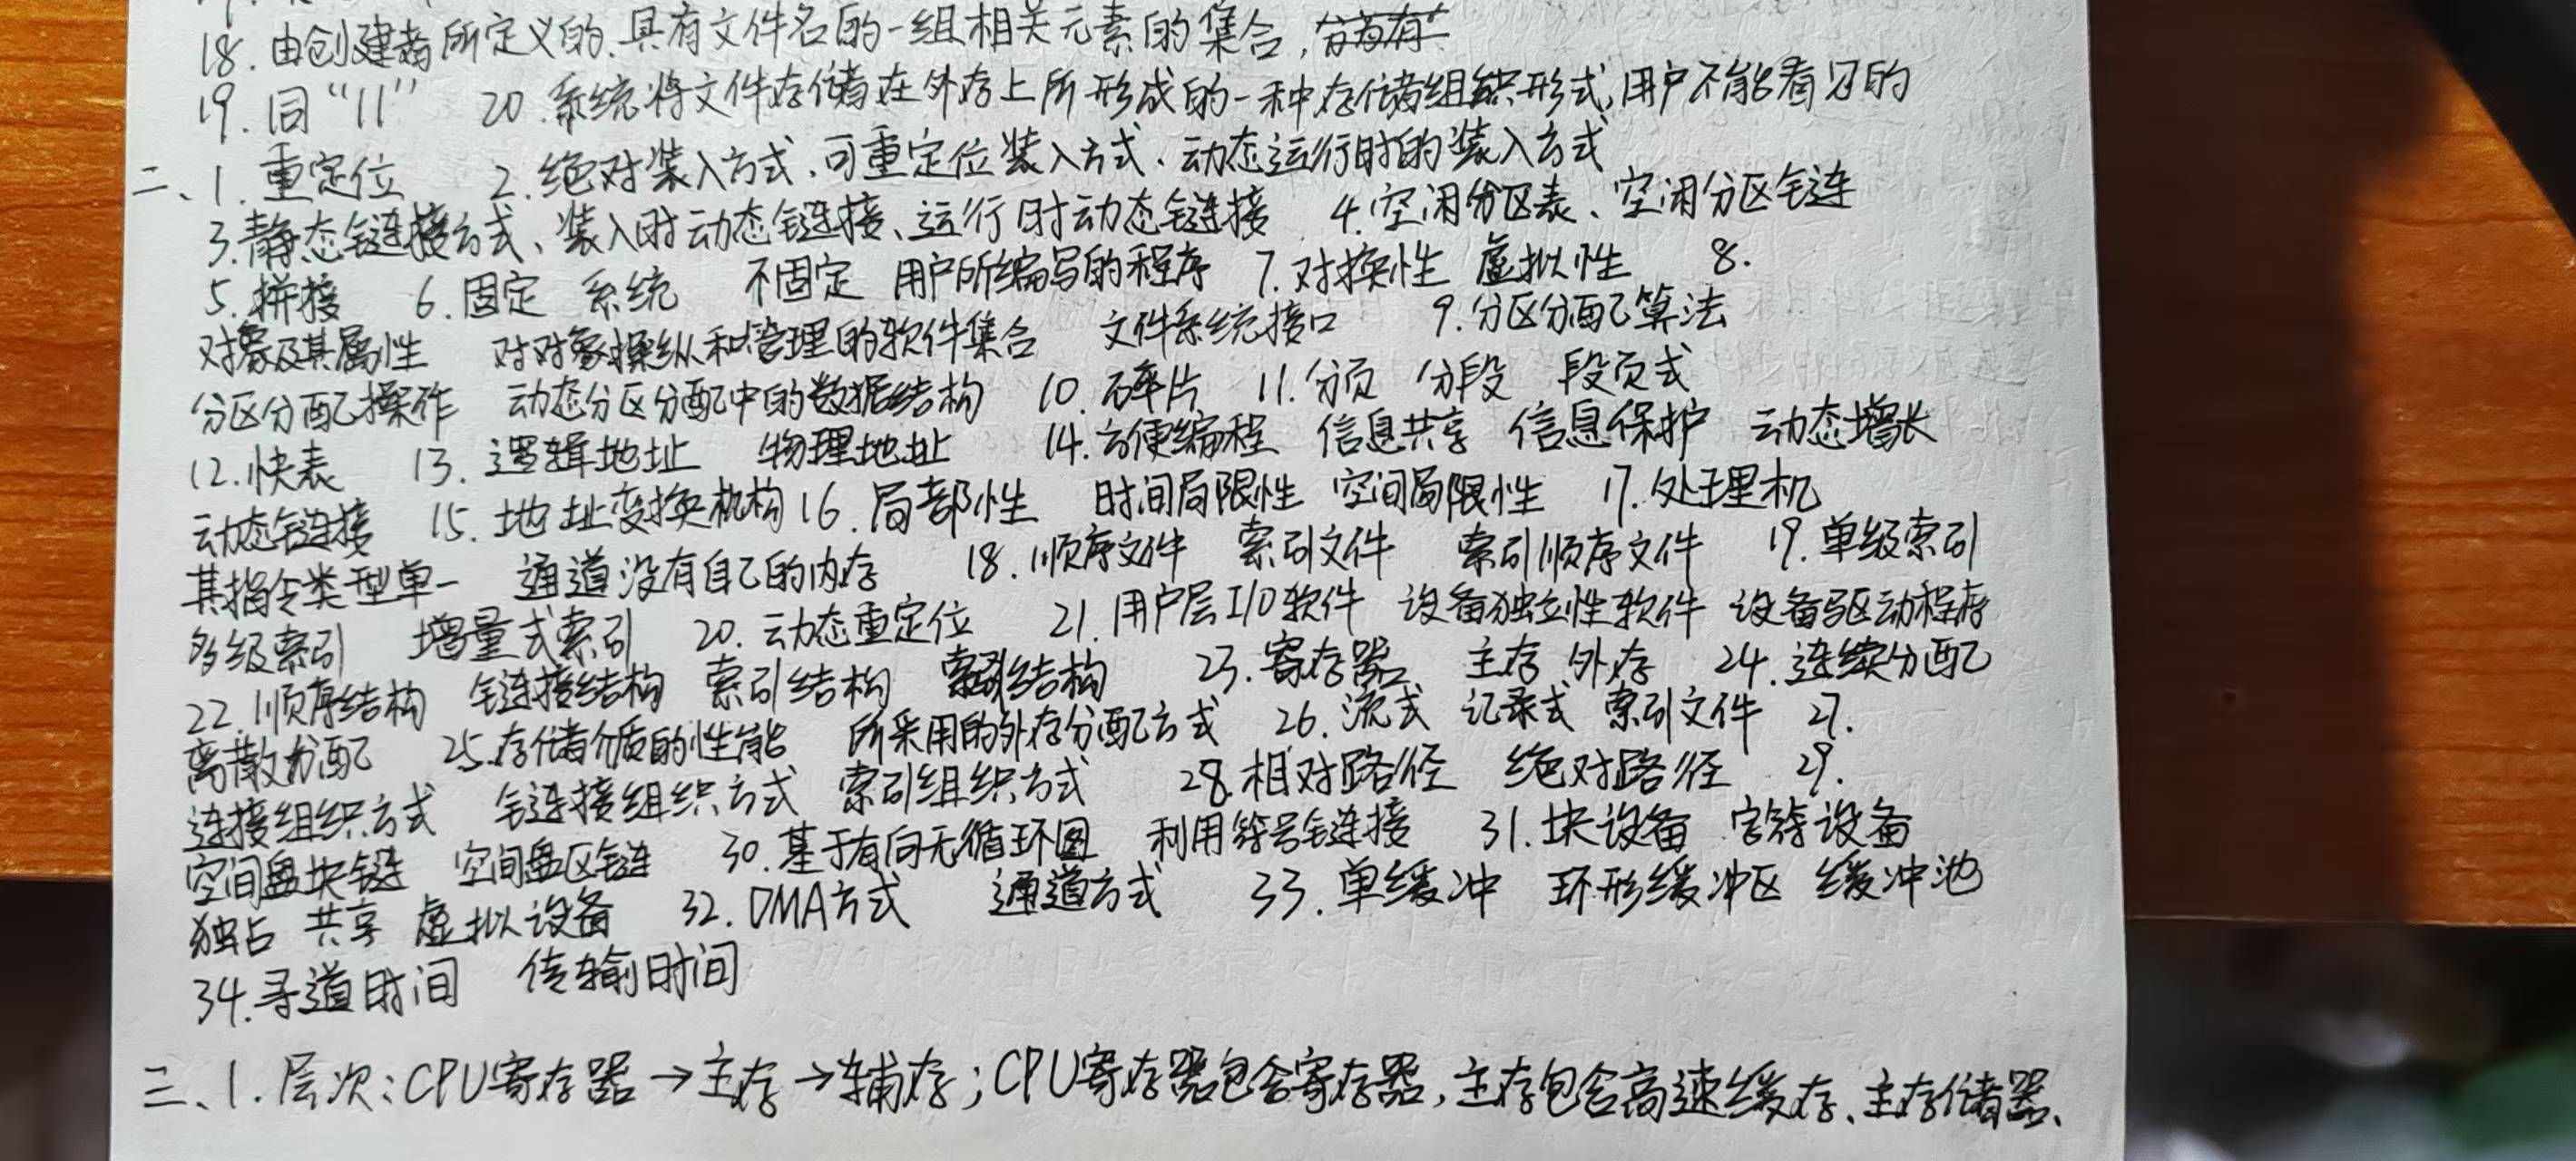 18.由创建者所定义的、具有文件名的一组相关元素的集合,
19.同“11” 20.系统将文件存储在外存上所形成的一种存储组织形式,用户不能看见的
二、1.重定位 2.绝对装入方式、可重定位装入方式、动态运行时的装入方式
3.静态链接方式、装入时动态链接、运行时动态链接 4.空闲分区表、空闲分区链
5.拼接 6.固定 系统 不固定 用户所编写的程序 7.对换性 虚拟性 8.
对象及其属性 对对象操纵和管理的软件集合 文件系统接口 9.分区分配算法
分区分配操作 动态分区分配中的数据结构 10.碎片 11.分页 分段 段页式
12.快表 13.逻辑地址 物理地址 14.方便编程 信息共享 信息保护 动态增长
动态链接 15.地址变换机构 16.局部性 时间局限性 空间局限性 17.处理机
其指令类型单一 通道没有自己的内存 18.顺序文件 索引文件 索引顺序文件 19.单级索引
多级索引 增量式索引 20.动态重定位 21.用户层I/O软件 设备独立性软件 设备驱动程序
22.顺序结构 链接结构 索引结构 23.寄存器 主存 外存 24.连续分配
离散分配 25.存储介质的性能 所采用的外存分配方式 26.流式 记录式 索引文件 27.
连接组织方式 链接组织方式 索引组织方式 28.相对路径 绝对路径 29.
空间盘块链 空间盘区链 30.基于有向无循环图 利用符号链接 31.块设备 字符设备
独占 共享 虚拟设备 32.DMA方式 通道方式 33.单缓冲 环形缓冲区 缓冲池
34.寻道时间 传输时间
三、1.层次:CPU寄存器→主存→辅存;CPU寄存器包含寄存器,主存包含高速缓存、主存储器、